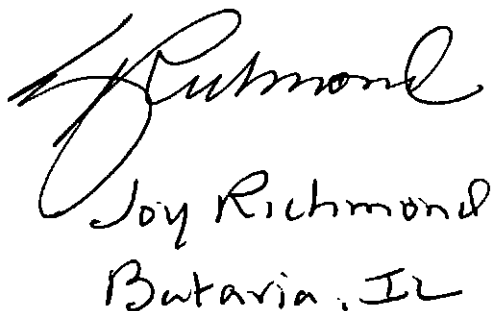 Joy Richmond
Joy Richmond
Batavia, IL